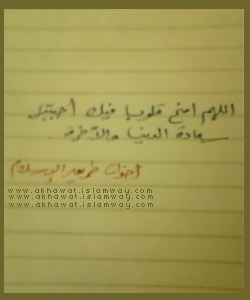 اللهم امنح قلوبا فيك أحببتها
سعادة الدنيا والآخرة
اخوات طريق الإسلام
www.akhawat.islamway.com
www.akhawat.islamway.com
www.akhawat.islamway.com